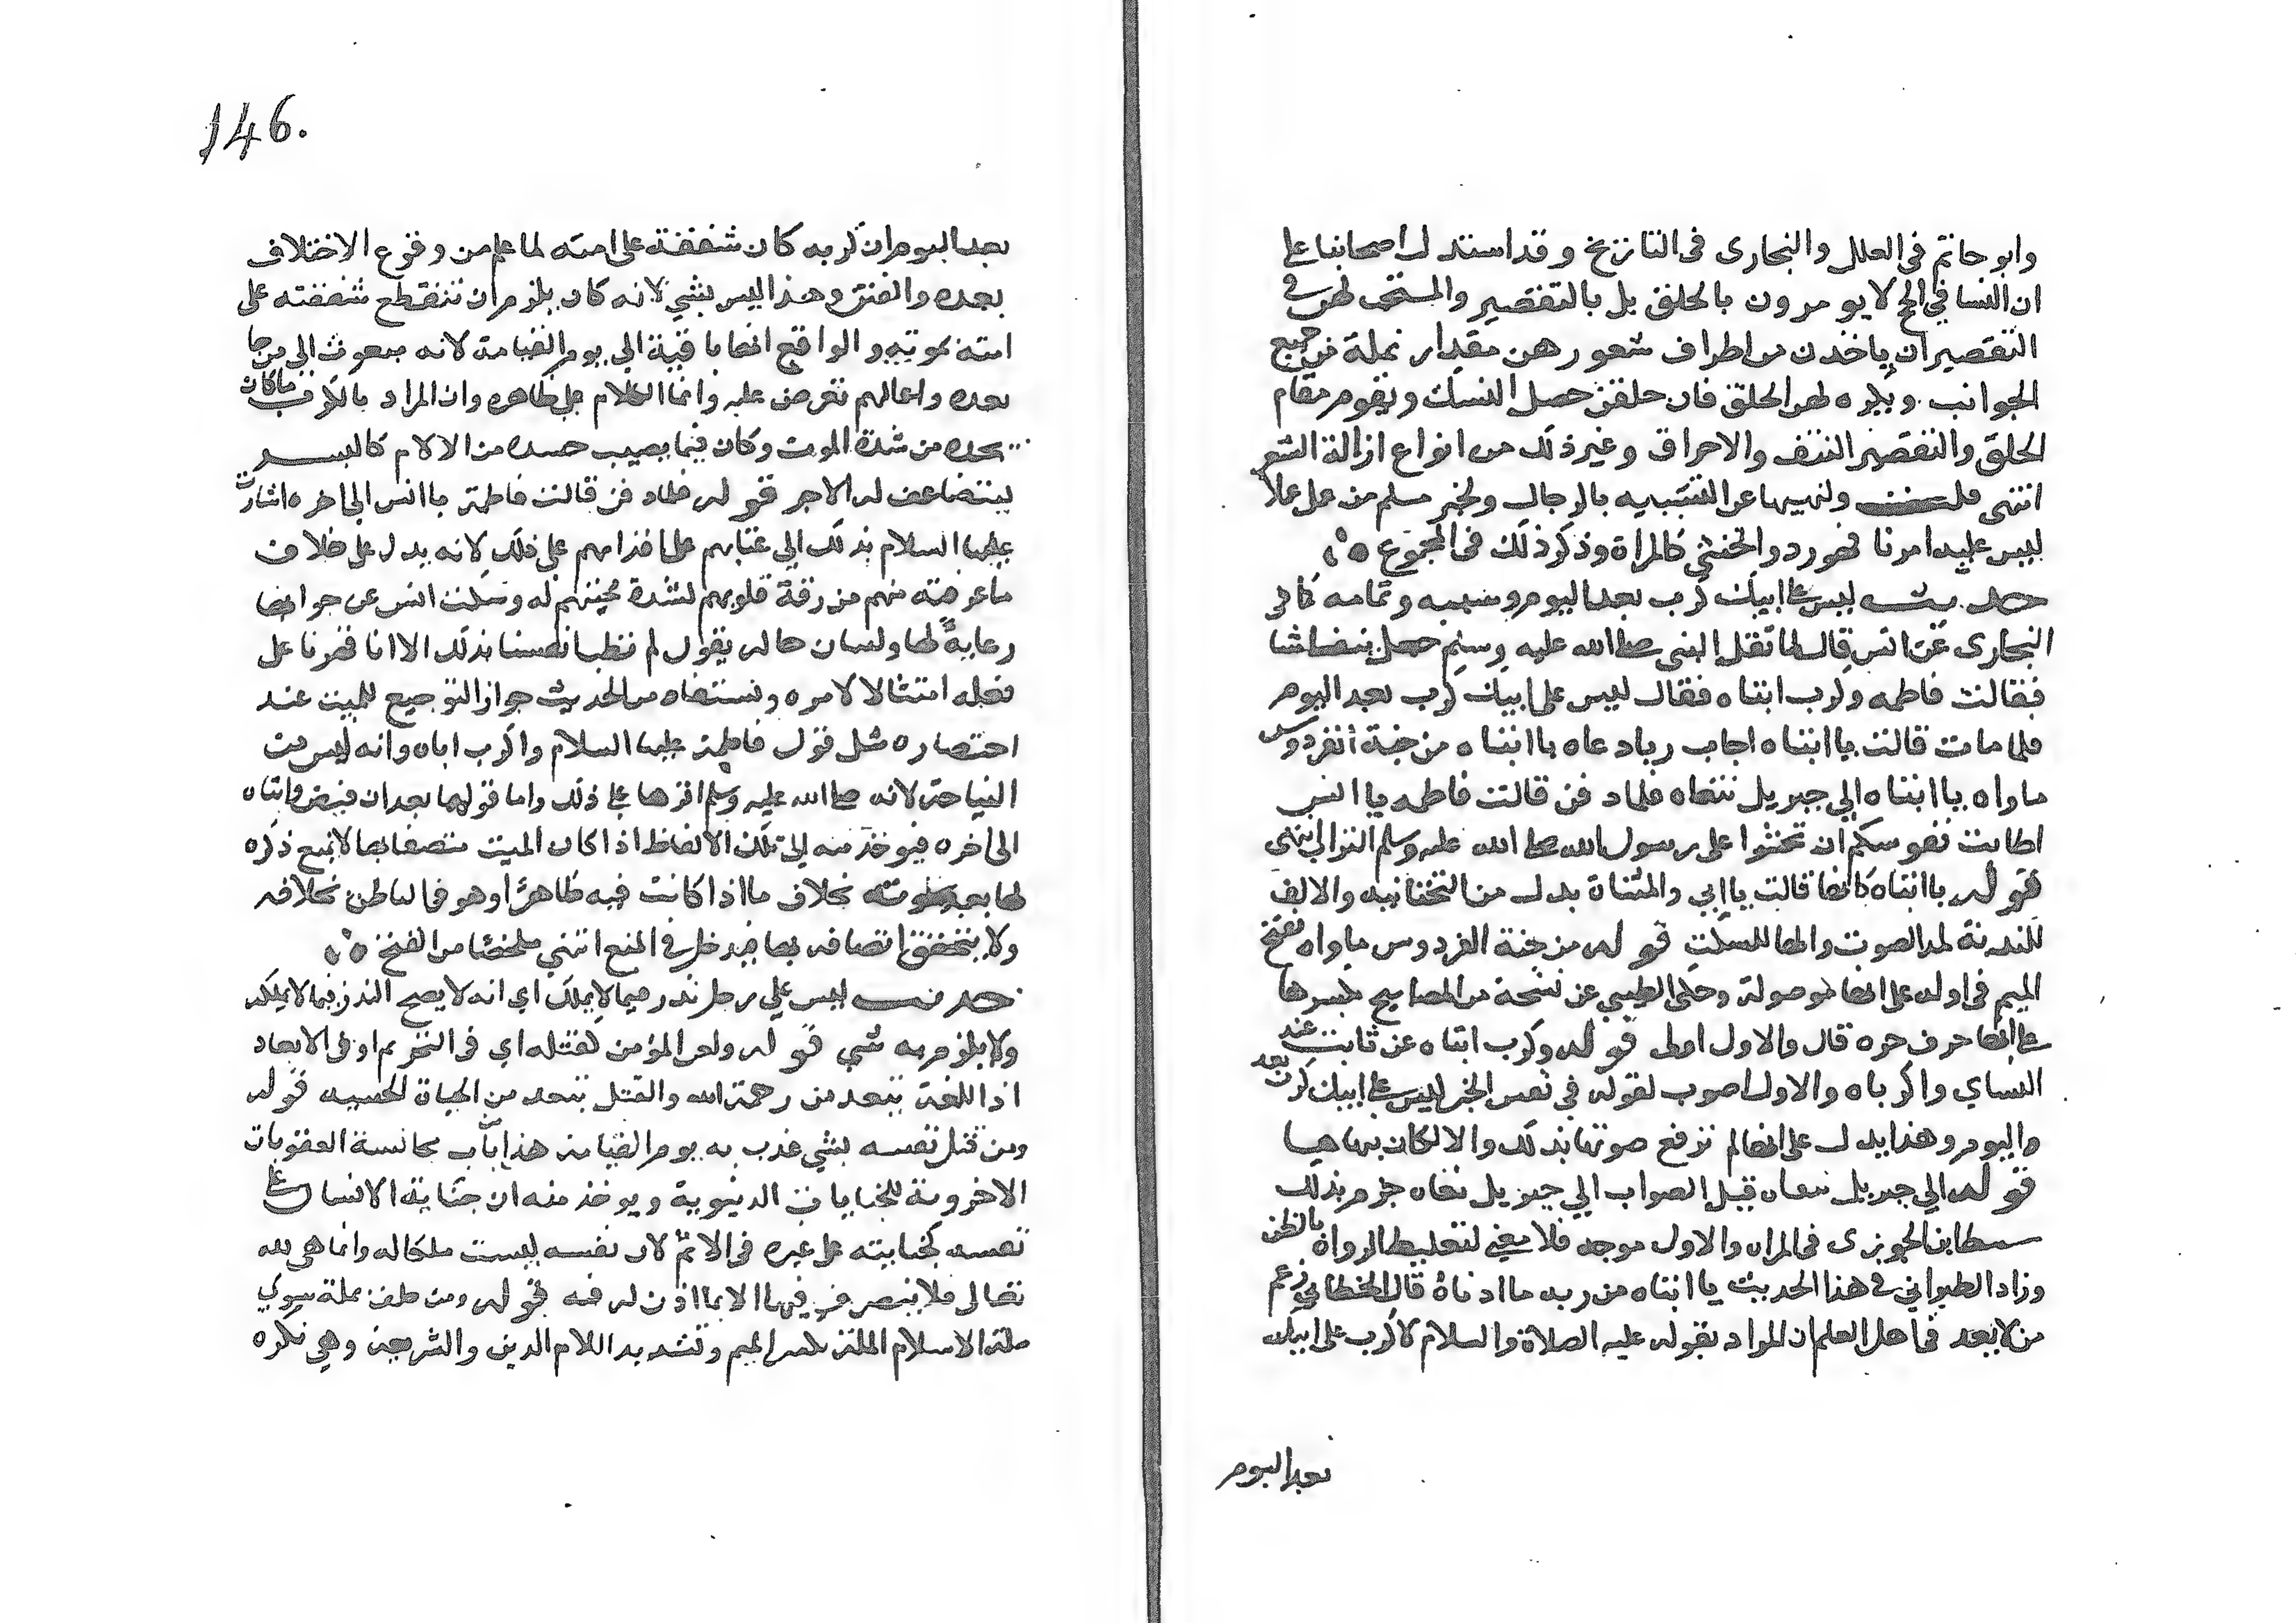 وابو حاتم في العلل والبخارى فى التاريخ وقد استدل اصحابنا على
ان النسا في الحج لا يومرون بالحلق بل بالتقصير والمستحب لهن في
التقصير ان ياخذن من اطراف شعورهن مقدار نملة من جميع
الجوانب ويكره لهن الحلق فان حلقن حصل النسك ويقوم مقام
الحلق والتقصير النتف والاحراق وغير ذلك من انواع ازالة الشعر
انتهى ولنهيها عن التشبه بالرجال ولخبر مسلم من عمل عملا
ليس عليه امرنا فهو رد والخنثى كالمراة وذكر ذلك فى المجموع
حديث ليس على ابيك كرب بعد اليوم وسببه وتمامه كما فى
البخارى عن انس قال لما ثقل النبى صلى الله عليه وسلم جعل يتغشا
فقالت فاطمه وكرب ابتاه فقال ليس على ابيك كرب بعد اليوم
فلما مات قالت يا ابتاه اجاب ربا دعاه يا ابتاه من جنة الفردوس
ماواه يا ابتاه الي جبريل ننعاه فلما دفن قالت فاطمه يا انس
اطابت نفوسكم ان تحثوا على رسول الله صلى الله عليه وسلم التراب انتهى
قوله يا ابتاه كانها قالت يا ابي والمثناة بدل من التحتانيه والالف
للندبة لمد الصوت والها للسكت قوله من جنة الفردوس ماواه بفتح
الميم في اوله على انها موصولة وحكى الطيبي عن نسخة من المصابيح بكسرها
على انها حرف جره قال والاول اولى قوله وكرب ابتاه عن ثابت عند
النساي واكرباه والاول اصوب لقوله في نفس الخبر ليس على ابيك كرب بعد
اليوم وهذا يدل على انها لم ترفع صوتها بذلك والا لكان ينهاها
قوله الي جبريل ننعاه قيل الصواب الي جبريل نعاه جزم بذلك
سبط ابن الجوزى في المراه والاول موجه فلا معنى لتغليط الرواة بالظن
وزاد الطبراني في هذا الحديث يا ابتاه من ربه ما ادناه قال الخطابي زعم
من لا يعد في اهل العلم ان المراد بقوله عليه الصلاة والسلام لا كرب على ابيك
بعد اليوم
146.
بعد اليوم ان كربه كان شفقة على امته لما علم من وقوع الاختلاف
بعده والفتن وهذا ليس بشي لانه كان يلزم ان تنقطع شفقته على
امته بموته والواقع انها باقية الي يوم القيامة لانه مبعوث الي من جا
بعده واعمالهم تعرض عليه وانما الكلام على ظاهره وان المراد بالكرب ما كان
يجده من شدة الموت وكان فيما يصيب جسده من الالام كالبشر
ليتضاعف له الاجر قوله فلما دفن قالت فاطمة يا انس الى اخره اشارت
عليها السلام بذلك الي عتابهم على اقدامهم على ذلك لانه يدل على خلاف
ما عرفته منهم من رقة قلوبهم لشدة محبتهم له وسكت انس عن جوابها
رعاية لها ولسان حاله يقول لم تطب انفسنا بذلك الا انا قهرنا على
فعله امتثالا لامره ونستفاد من الحديث جواز التوجع للميت عند
احتضاره مثل قول فاطمة عليها السلام واكرب اباه وانه ليس من
النياحة لانه صلى الله عليه وسلم اقرها على ذلك واما قولها بعد ان قبض وابتاه
الى اخره فيوخذ منه ان تلك الالفاظ اذا كان الميت متصفا بها لا يمنع ذكره
لها بعد موته بخلاف ما اذا كانت فيه ظاهرا وهو في الباطن بخلافه
ولا يتحقق اتصافه بها فيدخل في المنع انتهى ملخصا من الفتح
حديث ليس على رجل نذر فيما لا يملك اي انه لا يصح النذر فيما لا يملكه
ولا يلزم به شي قوله ولعن المؤمن كقتله اي في التحريم او فى الابعاد
اذ اللعنة تبعد من رحمة الله والقتل يبعد من الحياة الحسيه قوله
ومن قتل نفسه بشي عذب به يوم القيامة هذا من باب مجانسة العقوبات
الاخروية للجنايات الدنيوية ويوخذ منه ان جناية الانسان على
نفسه كجنايته على غيره فى الاثم لان نفسه ليست ملكا له وانما هي لله
تعالى فلا يتصرف فيها الا بما اذن له فيه قوله ومن حلف بملة سوي
ملة الاسلام الملة بكسر الميم وتشديد اللام الدين والشريعة وهي نكره